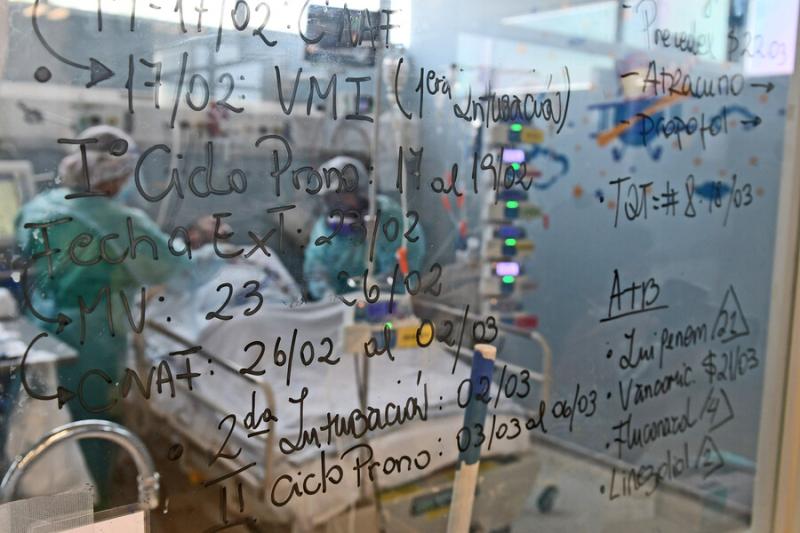 11-17/02: CNAF
17/02: VMI (1era Intubación)
I° Ciclo Prono: 17 al 19/02
Fecha Ext: 23/02
MV: 23 26/02
CNAF: 26/02 al 02/03
2da Intubación: 02/03
II Ciclo Prono: 03/03 al 06/03
- Precedex $22.03
- Atracuno →
- Propofol →
• TQT: #8 18/03
ATB
• Imipenem /21
• Vancomic. $21/03
• Fluconazol /4
• Linezolid /2